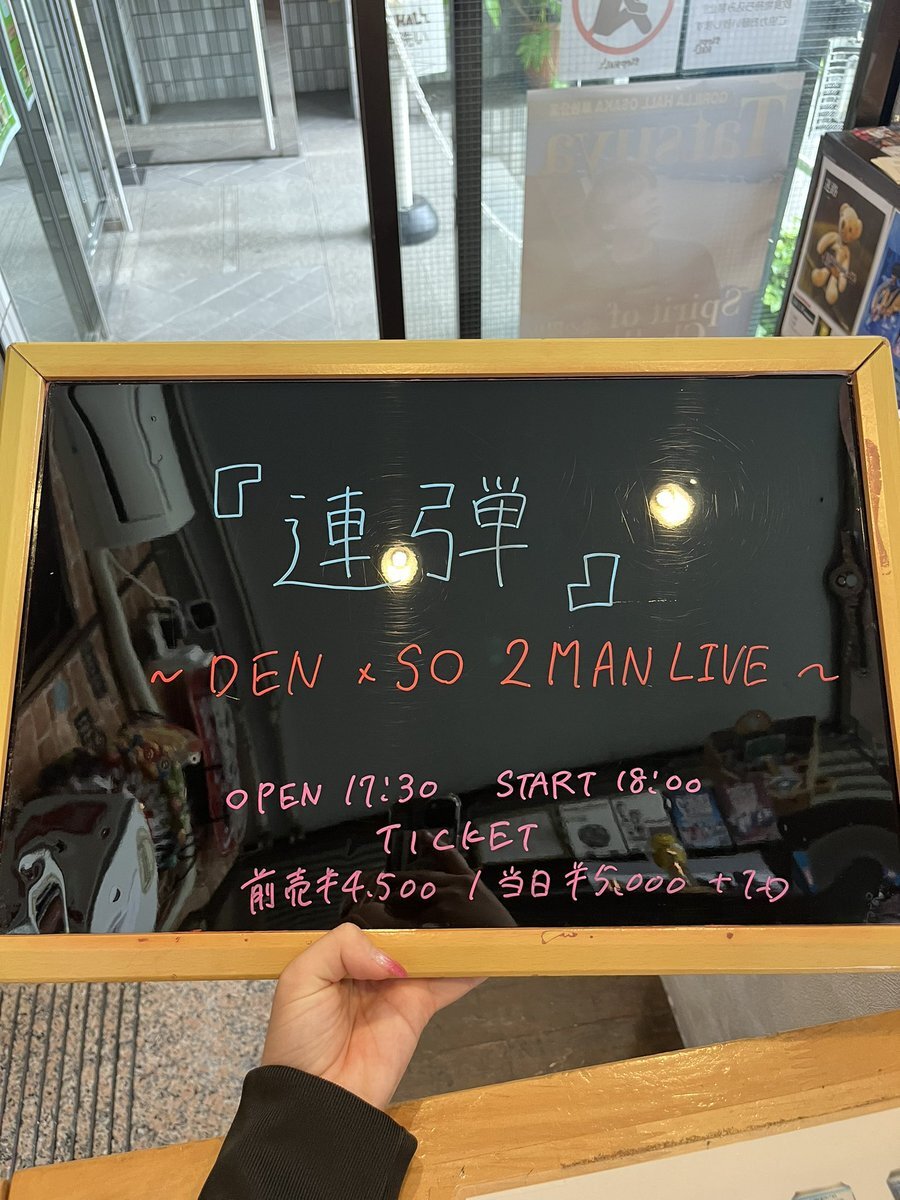 HALL
GORILLA HALL OSAKA
Tatsuya
Spirit of
『連弾』
~ DEN × SO 2MAN LIVE ~
OPEN 17:30 START 18:00
TICKET
前売¥4.500 / 当日¥5.000 +1D